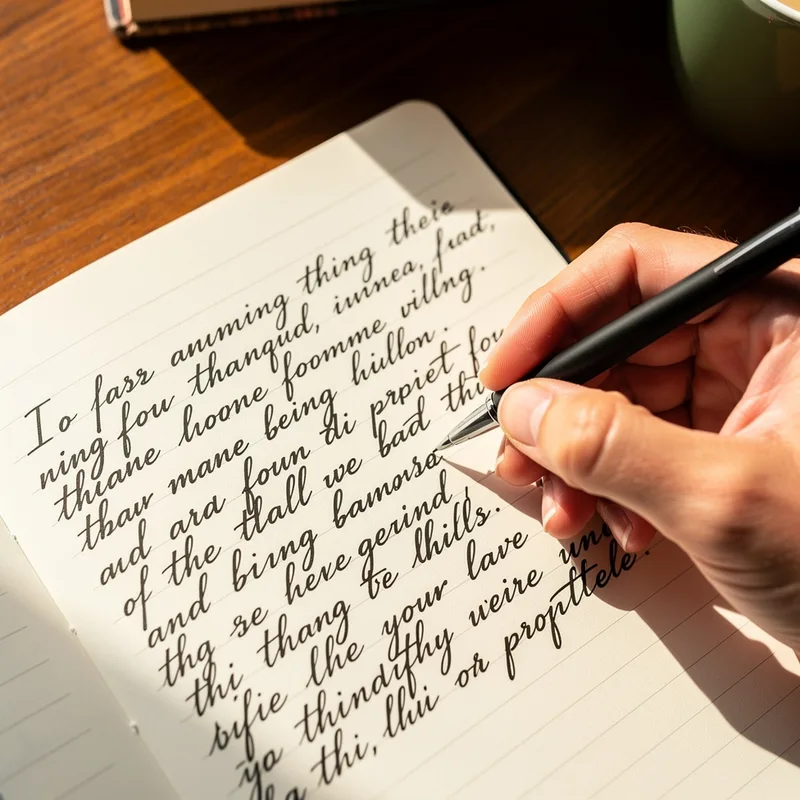 Io farr anuming thing theie
ning fou thanqud, iunnea, frad,
thiane hoone foomme villng.
thaw mane being hullon.
and ara foun di prpiet fou
of the tlall we bad thi
and biing bamorsa
thg se heve gerind,
thi thang te lhills.
sifie lhe your lave
ya thindifhy weire
thi, lhii or propttele.